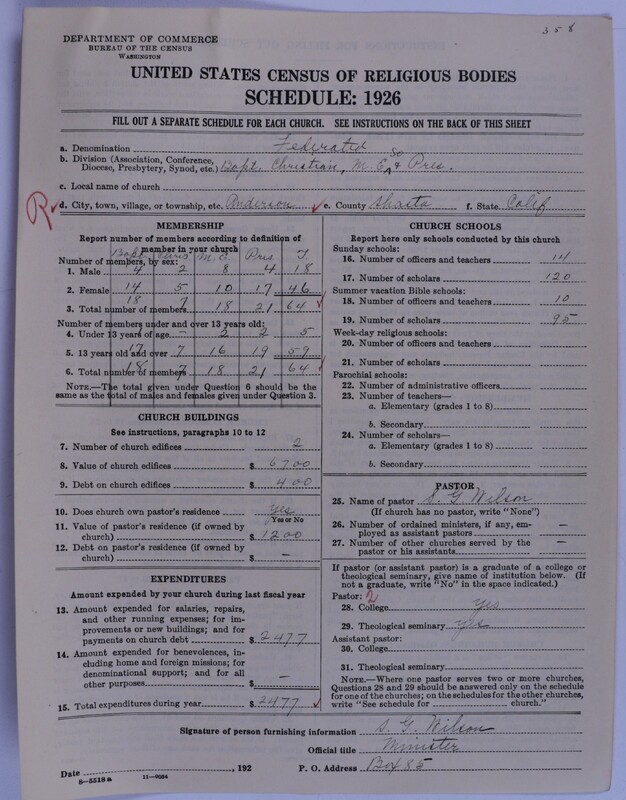 358
DEPARTMENT OF COMMERCE
BUREAU OF THE CENSUS
WASHINGTON
UNITED STATES CENSUS OF RELIGIOUS BODIES
SCHEDULE: 1926
FILL OUT A SEPARATE SCHEDULE FOR EACH CHURCH. SEE INSTRUCTIONS ON THE BACK OF THIS SHEET
a. Denomination Federated
b. Division (Association, Conference, Diocese, Presbytery, Synod, etc.) Bapt. Christian, M. E. So & Pres.
c. Local name of church
d. City, town, village, or township, etc. Anderson e. County Shasta f. State Calif
MEMBERSHIP
Report number of members according to definition of member in your church
Bapt Chris M.E. Pres T.
Number of members, by sex:
1. Male 4 2 8 4 18
2. Female 14 5 10 17 46
3. Total number of members 18 7 18 21 64
Number of members under and over 13 years old:
4. Under 13 years of age - 2 2 5
5. 13 years old and over 17 7 16 19 59
6. Total number of members 18 7 18 21 64
NOTE.—The total given under Question 6 should be the same as the total of males and females given under Question 3.
CHURCH BUILDINGS
See instructions, paragraphs 10 to 12
7. Number of church edifices 2
8. Value of church edifices $ 6700
9. Debt on church edifices $ 400
10. Does church own pastor's residence? Yes
Yes or No
11. Value of pastor's residence (if owned by church) $ 1200
12. Debt on pastor's residence (if owned by church) $ —
EXPENDITURES
Amount expended by your church during last fiscal year
13. Amount expended for salaries, repairs, and other running expenses; for improvements or new buildings; and for payments on church debt $ 2477
14. Amount expended for benevolences, including home and foreign missions; for denominational support; and for all other purposes $ —
15. Total expenditures during year $ 2477
CHURCH SCHOOLS
Report here only schools conducted by this church
Sunday schools:
16. Number of officers and teachers 14
17. Number of scholars 120
Summer vacation Bible schools:
18. Number of officers and teachers 10
19. Number of scholars 95
Week-day religious schools:
20. Number of officers and teachers
21. Number of scholars
Parochial schools:
22. Number of administrative officers
23. Number of teachers—
a. Elementary (grades 1 to 8)
b. Secondary
24. Number of scholars—
a. Elementary (grades 1 to 8)
b. Secondary
PASTOR
25. Name of pastor S. G. Wilson
(If church has no pastor, write "None")
26. Number of ordained ministers, if any, employed as assistant pastors —
27. Number of other churches served by the pastor or his assistants —
If pastor (or assistant pastor) is a graduate of a college or theological seminary, give name of institution below. (If not a graduate, write "No" in the space indicated.)
Pastor: 2
28. College yes
29. Theological seminary yes
Assistant pastor:
30. College
31. Theological seminary
NOTE.—Where one pastor serves two or more churches, Questions 28 and 29 should be answered only on the schedule for one of the churches; on the schedules for the other churches, write "See schedule for church."
Signature of person furnishing information S. G. Wilson
Official title Minister
Date , 192 P. O. Address Box 85
8-5518a 11-9024